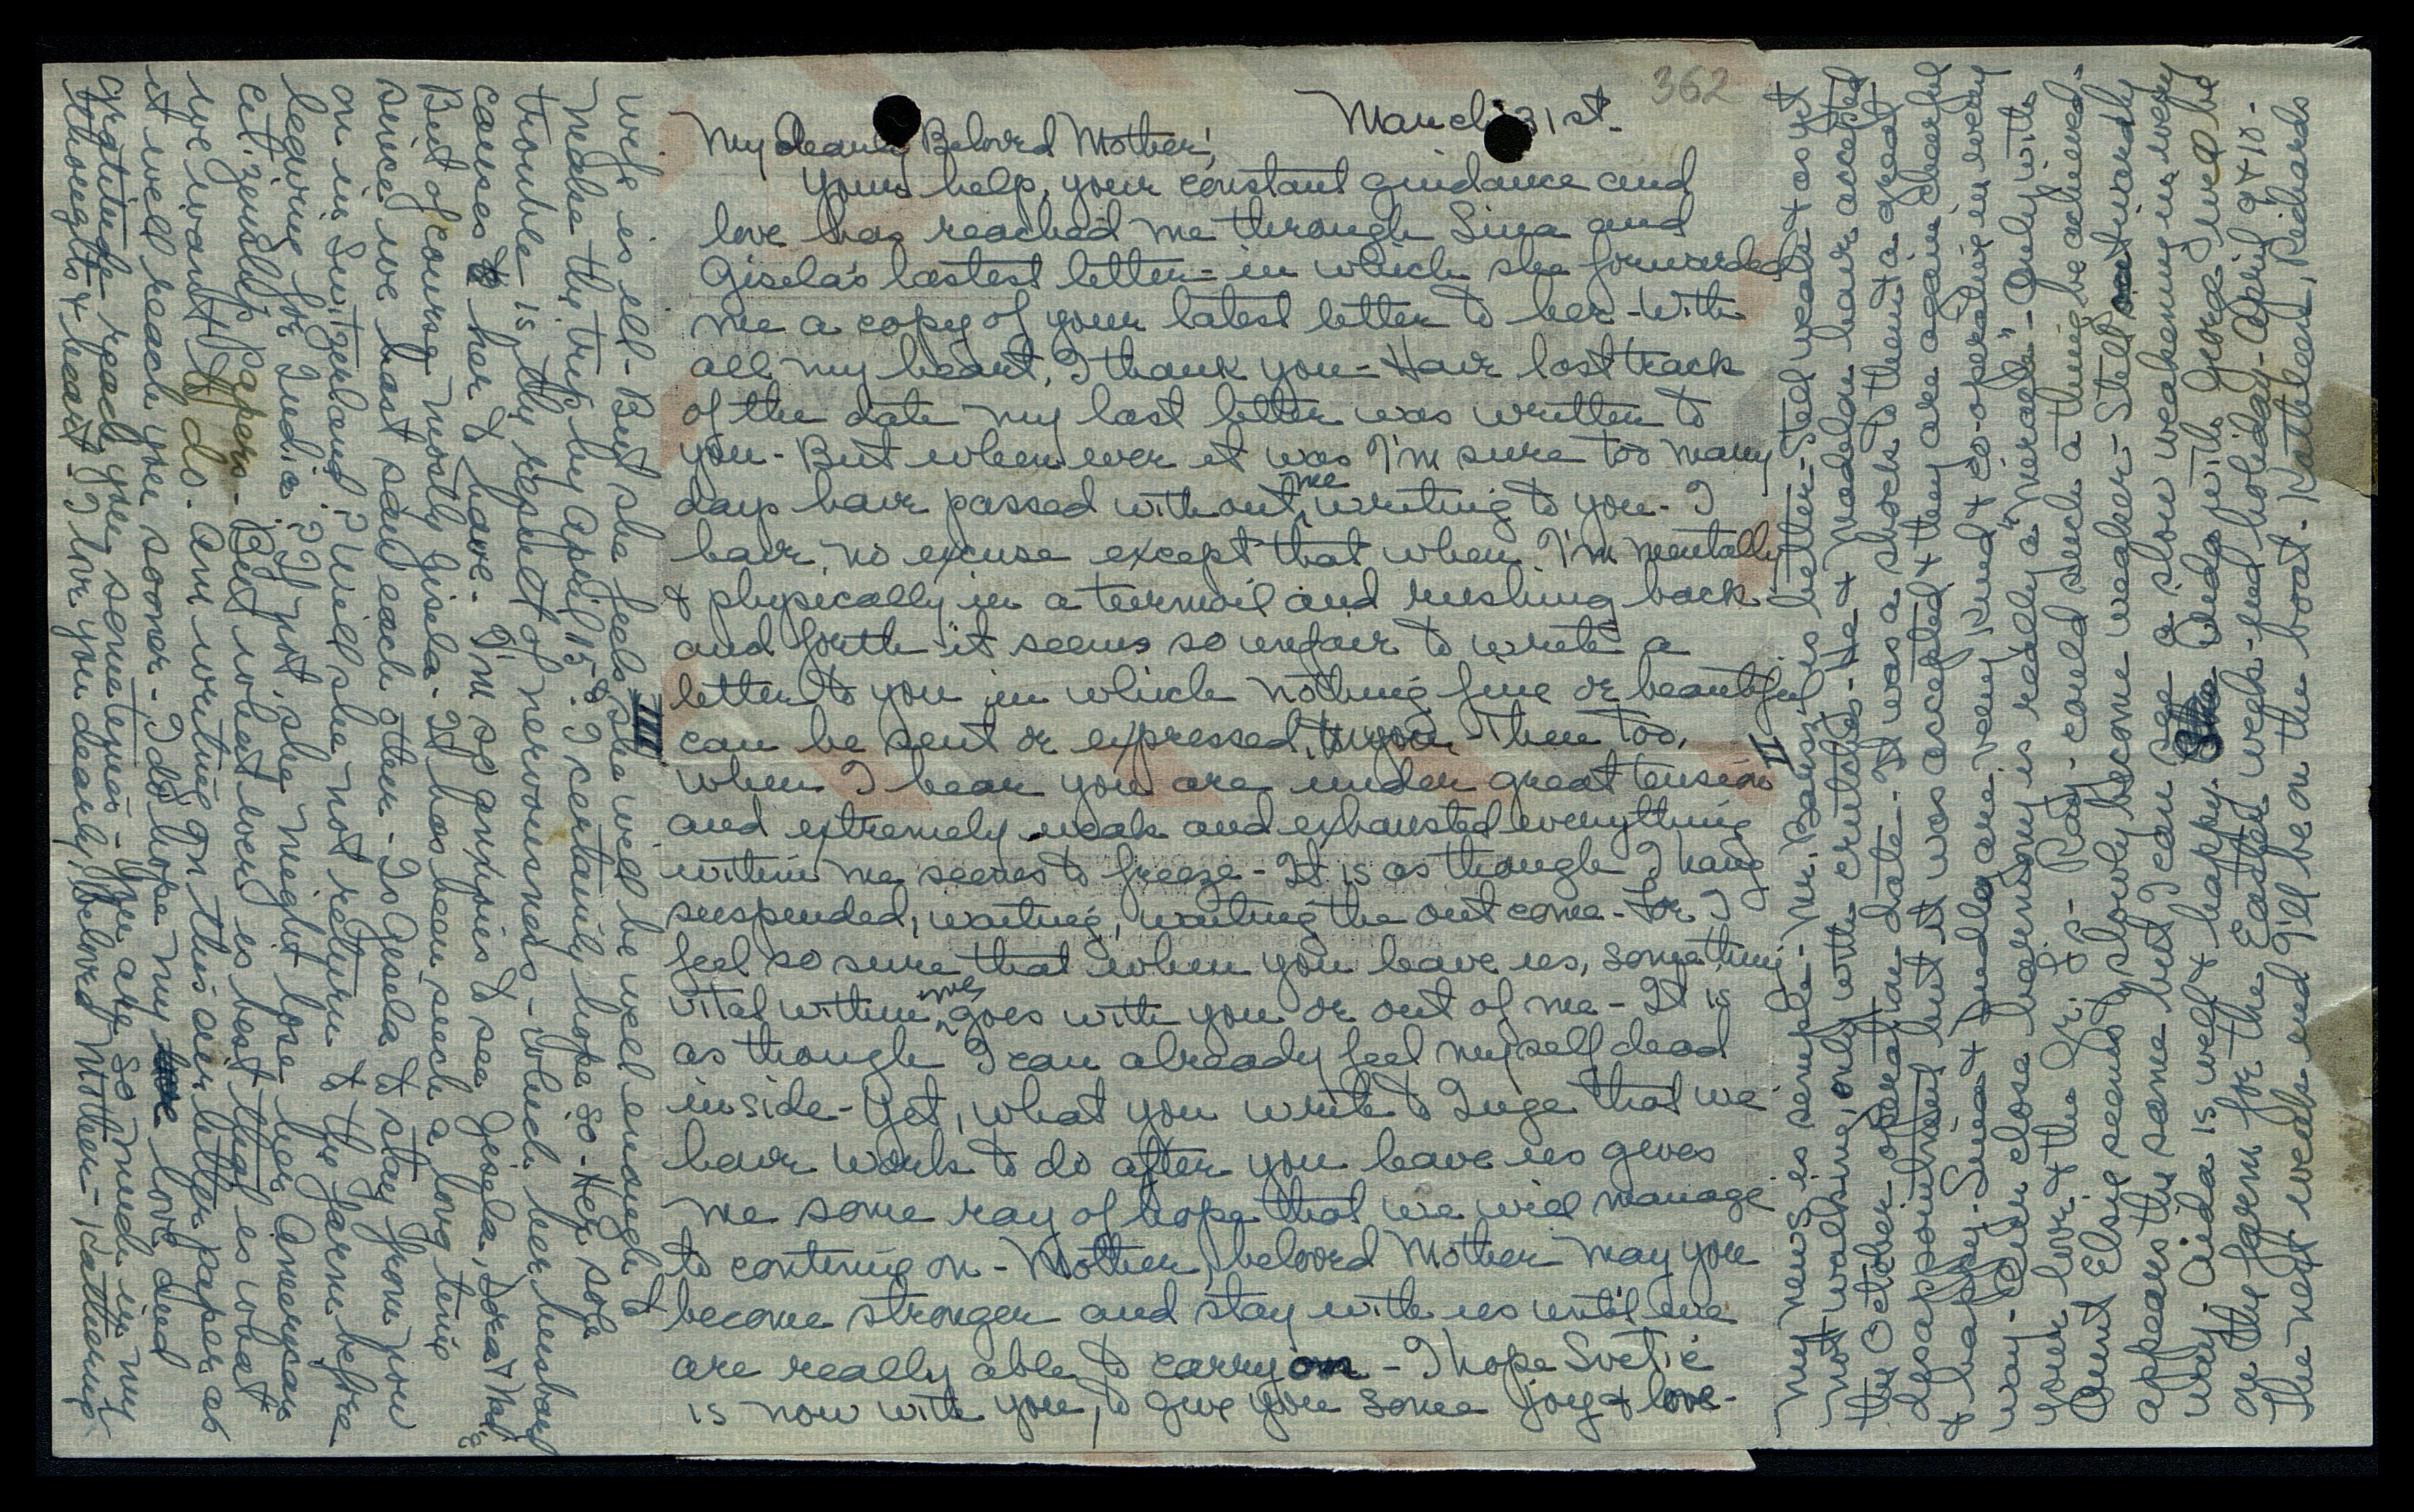 362
March 31st.
My dearly Beloved Mother,
Your help, your constant guidance and
love has reached me through Sina and
Gisela's lastest letter - in which she forwarded
me a copy of your latest letter to her - With
all my heart, I thank you - Have lost track
of the date my last letter was written to
you - But whenever it was I'm sure too many
days have passed without me writing to you - I
have no excuse except that when I'm mentally
& physically in a turmoil and rushing back
and forth it seems so unfair to write a
letter to you in which nothing fine or beautiful
can be sent or expressed, to you - Then too,
when I hear you are under great tension
and extremely weak and exhausted everything
within me seems to freeze - It is as though I hang
suspended, waiting, waiting the outcome - for I
feel so sure that when you leave us, something
vital within me goes with you or out of me - It is
as though I can already feel myself dead
inside - Yet, what you write to Inge that we
have work to do after you leave us gives
me some ray of hope that we will manage
to continue on - Mother, beloved Mother may you
become stronger and stay with us until we
are really able to carry on - I hope Svetie
is now with you, to give you some joy & love -
II
My news is simple - Mr. Bainsi is better - Still weak & as yet
not walking, only with crutches - He & Madelan have accepted
the October operation date - It was a shock to them & a great
disappointment but it was accepted & they are again cheerful
& happy - Sina & Judla are very kind & co-operative in every
way - Our close harmony is really a "miracle" - Only with
your love & the Gr. Gs - Ray - could such a thing be achieved -
Aunt Elsie seems to slowly become weaker - Still outwardly
appears the same but I can see a slow weakening in every
way. Aida is well & happy. Aida with George & me will be
on the farm for the Easter week-end holiday - April 9 & 10 -
The next week-end I'll be on the boat - Kathleen, Richards
III
wife is ill - But she feels she will be well enough to
make the trip by April 15th I certainly hope so - Her sole
trouble is the result of nervousness - which her husband
causes her to have - I'm so anxious to see Gisela, Dora & Marie
But of course mostly Gisela - It has been such a long time
since we last saw each other - Is Gisela to stay from now
on in Switzerland? Will she not return to the farm before
leaving for India?? If not, she might lose her American
citizenship papers - But whatever is best that is what
we want to do. Am writing on this air letter paper as
it will reach you sooner - I do hope my love and
gratitude reach you sometimes - You are so much in my
thoughts & heart - I love you dearly, beloved Mother - Katherine